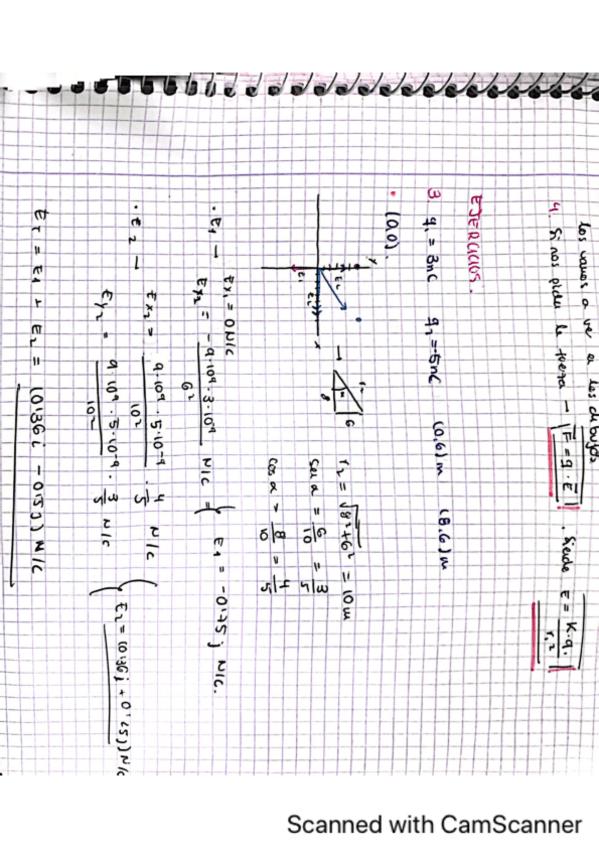 los vamos a ver a los dibujos
4. Si nos piden la fuerza → F = q · E . Siendo E = K·q / r²
EJERCICIOS.
3. q₁ = 3nC q₂ = -5nC (0,6)m (8,6)m
• (0,0).
y
x
E₂
E₁
→
r₂
6
8
α
r₂ = √8²+6² = 10m
sen α = 6/10 = 3/5
cos α = 8/10 = 4/5
· E₁ → Ex₁ = 0 N/C
Ey₂ = -9·10⁹·3·10⁻⁹ / 6² N/C = { E₁ = -0'75 j N/C.
· E₂ → Ex₂ = 9·10⁹·5·10⁻⁹ / 10² · 4/5 N/C
Ey₂ = 9·10⁹·5·10⁻⁹ / 10² · 3/5 N/C
E₂ = (0'36i + 0'25j) N/C
Eₜ = E₁ + E₂ = (0'36i - 0'5j) N/C
Scanned with CamScanner